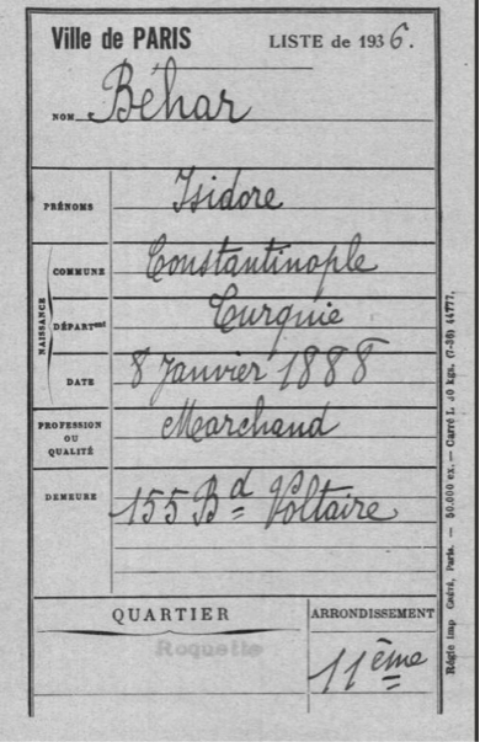 Ville de PARIS LISTE de 1936.
NOM Béhar
PRÉNOMS Isidore
NAISSANCE
COMMUNE Constantinople
DÉPARTent Turquie
DATE 8 Janvier 1888
PROFESSION OU QUALITÉ Marchand
DEMEURE 155 Bd Voltaire
QUARTIER ARRONDISSEMENT
Roquette 11ème
Régie Imp Paris. — 50.000 ex. — Carré L kgs. (7-36) 44777.